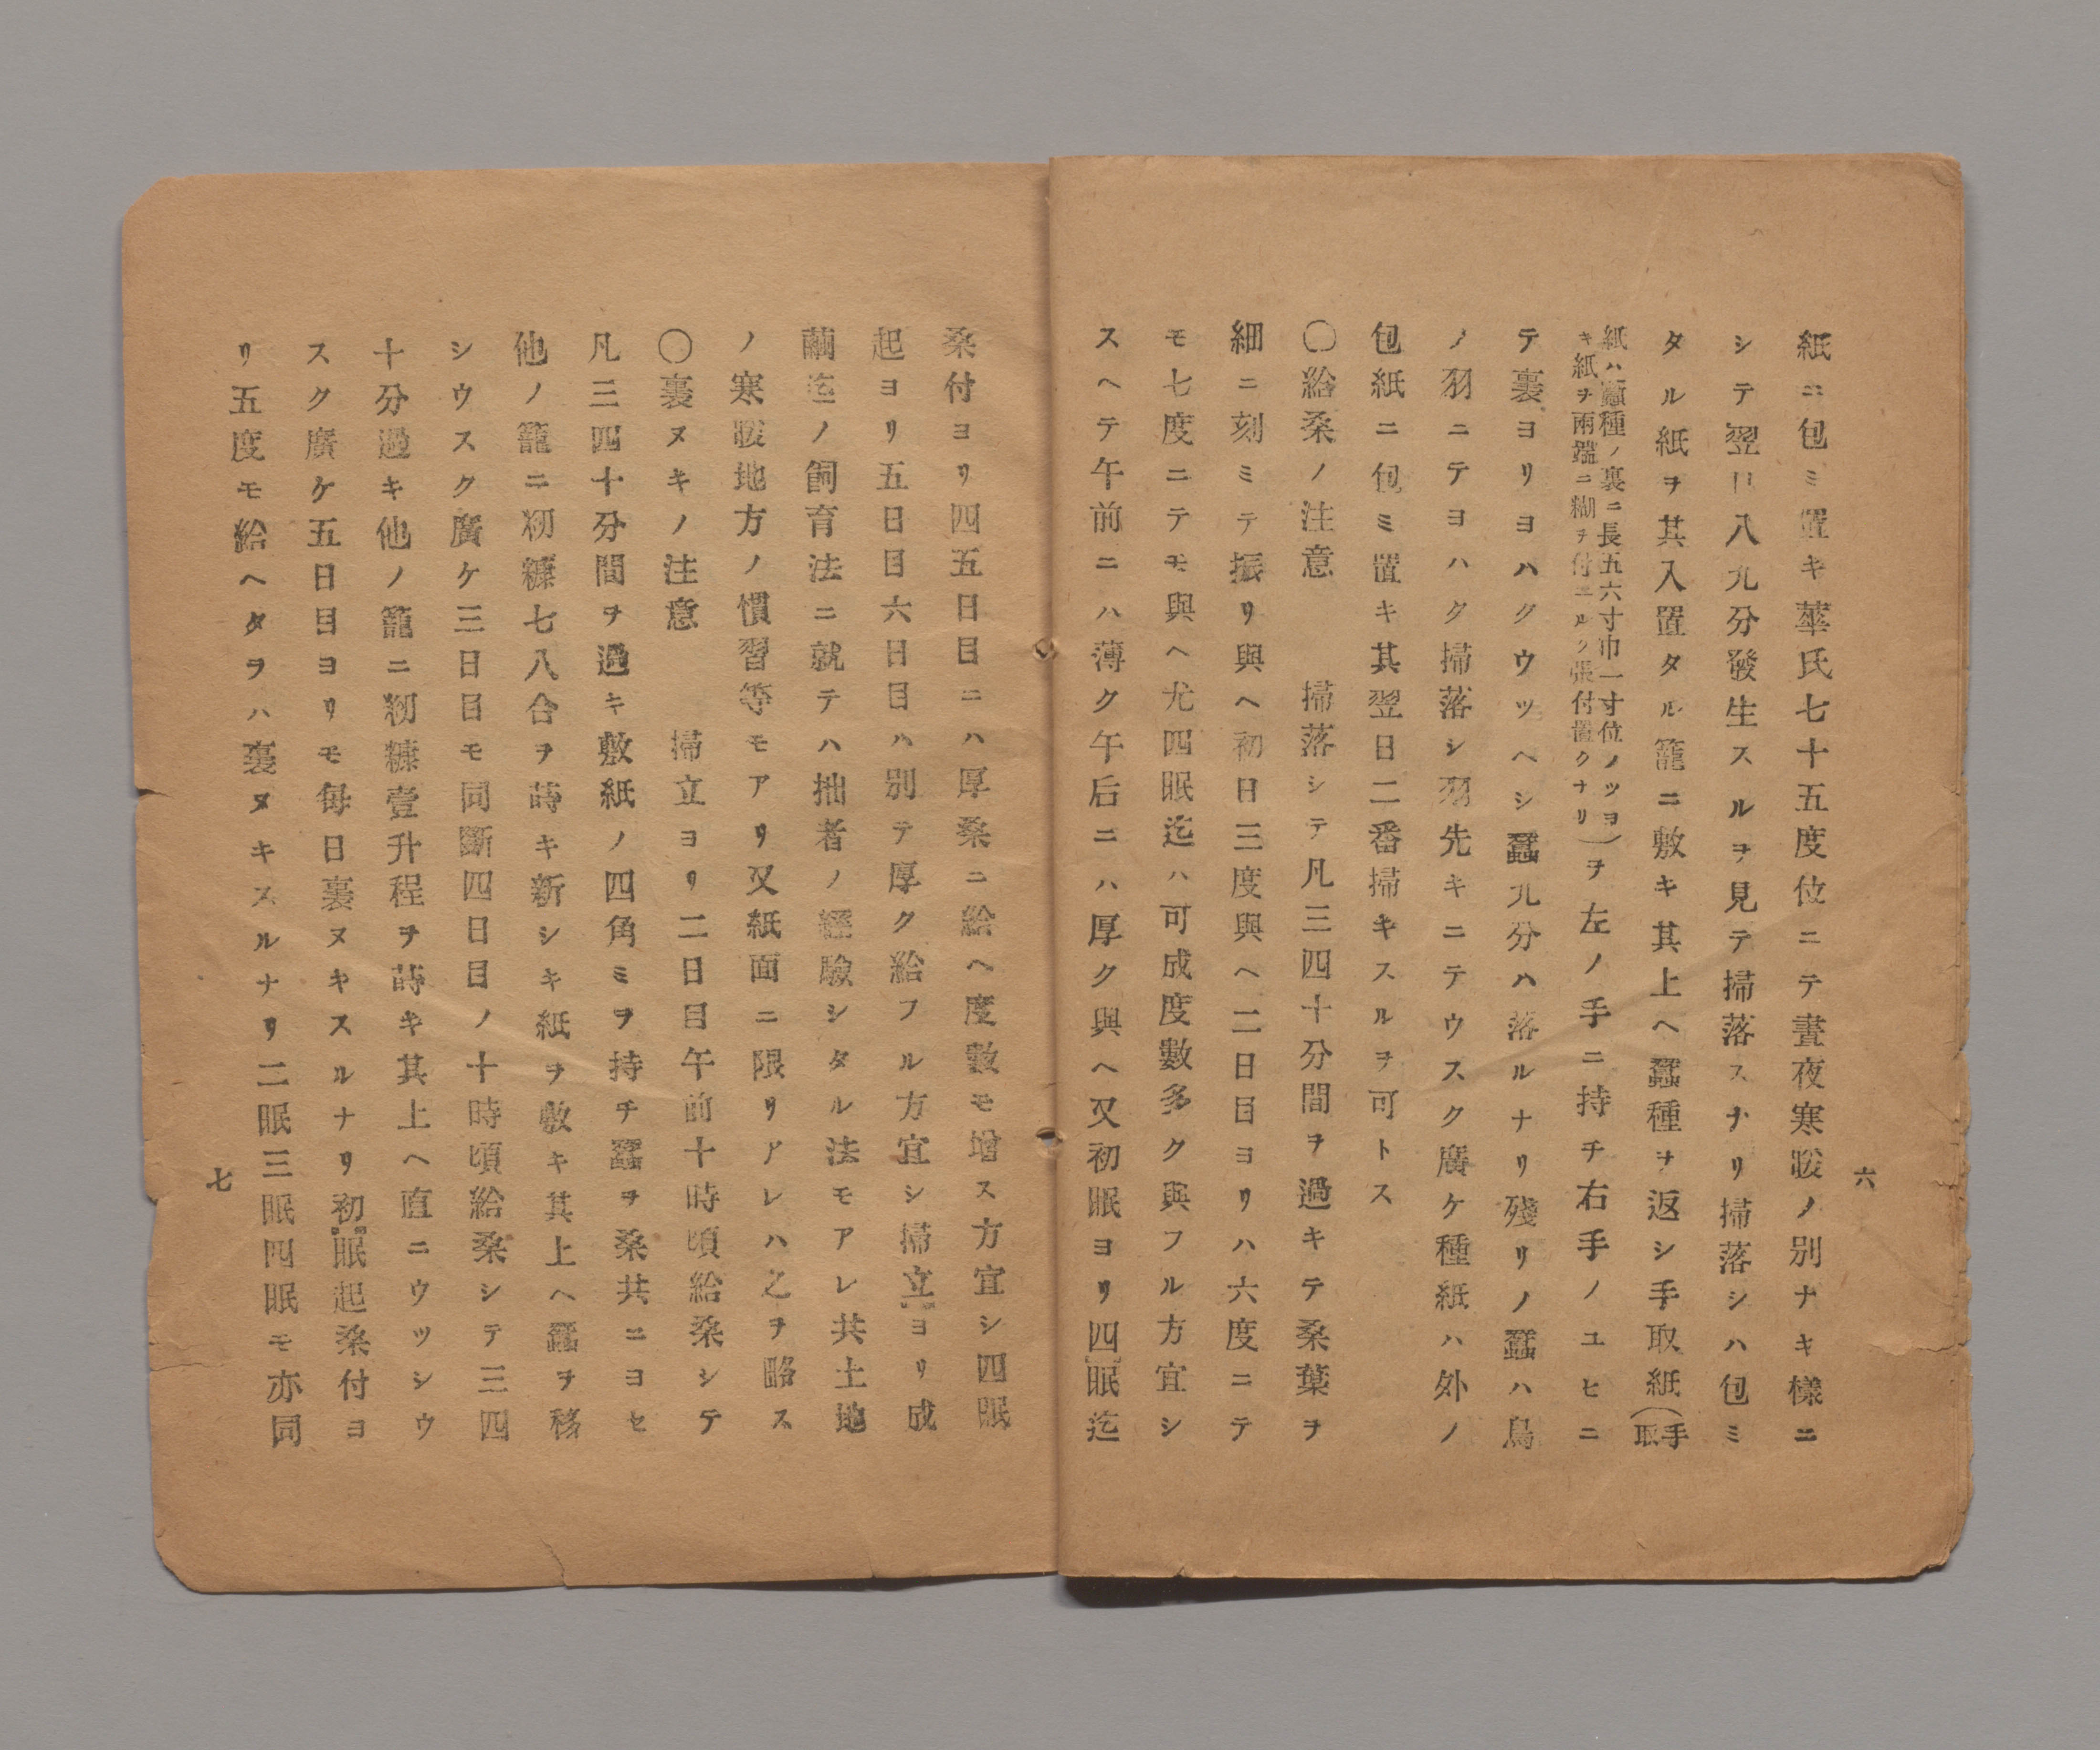 六
紙ニ包ミ置キ華氏七十五度位ニテ晝夜寒暖ノ別ナキ樣ニ
シテ翌日八九分發生スルヲ見テ掃落スナリ掃落シハ包ミ
タル紙ヲ其入置タル籠ニ敷キ其上ヘ蠶種ヲ返シ手取紙(手取
紙ハ蠶種ノ裏ニ長五六寸巾一寸位ノツヨ
キ紙ヲ兩端ニ糊ヲ付ユルク張付置クナリ)ヲ左ノ手ニ持チ右手ノユヒニ
テ裏ヨリヨハクウツヘシ蠶九分ハ落ルナリ殘リノ蠶ハ鳥
ノ羽ニテヨハク掃落シ羽先キニテウスク廣ケ種紙ハ外ノ
包紙ニ包ミ置キ其翌日二番掃キスルヲ可トス
〇給桑ノ注意 掃落シテ凡三四十分間ヲ過キテ桑葉ヲ
細ニ刻ミテ振リ與ヘ初日三度與ヘ二日目ヨリハ六度ニテ
モ七度ニテモ與ヘ尤四眠迄ハ可成度數多ク與フル方宜シ
スヘテ午前ニハ薄ク午后ニハ厚ク與ヘ又初眠ヨリ四眠迄
桑付ヨリ四五日目ニハ厚桑ニ給ヘ度數モ增ス方宜シ四眠
起ヨリ五日目六日目ハ別テ厚ク給フル方宜シ掃立ヨリ成
繭迄ノ飼育法ニ就テハ拙者ノ經驗シタル法モアレ共土地
ノ寒暖地方ノ慣習等モアリ又紙面ニ限リアレハ之ヲ略ス
〇裏ヌキノ注意 掃立ヨリ二日目午前十時頃給桑シテ
凡三四十分間ヲ過キ敷紙ノ四角ミヲ持チ蠶ヲ桑共ニヨセ
他ノ籠ニ籾糠七八合ヲ蒔キ新シキ紙ヲ敷キ其上ヘ蠶ヲ移
シウスク廣ケ三日目モ同斷四日目ノ十時頃給桑シテ三四
十分過キ他ノ籠ニ籾糠壹升程ヲ蒔キ其上ヘ直ニウツシウ
スク廣ケ五日目ヨリモ每日裏ヌキスルナリ初眠起桑付ヨ
リ五度モ給ヘタヲハ裏ヌキスルナリ二眠三眠四眠モ亦同
七